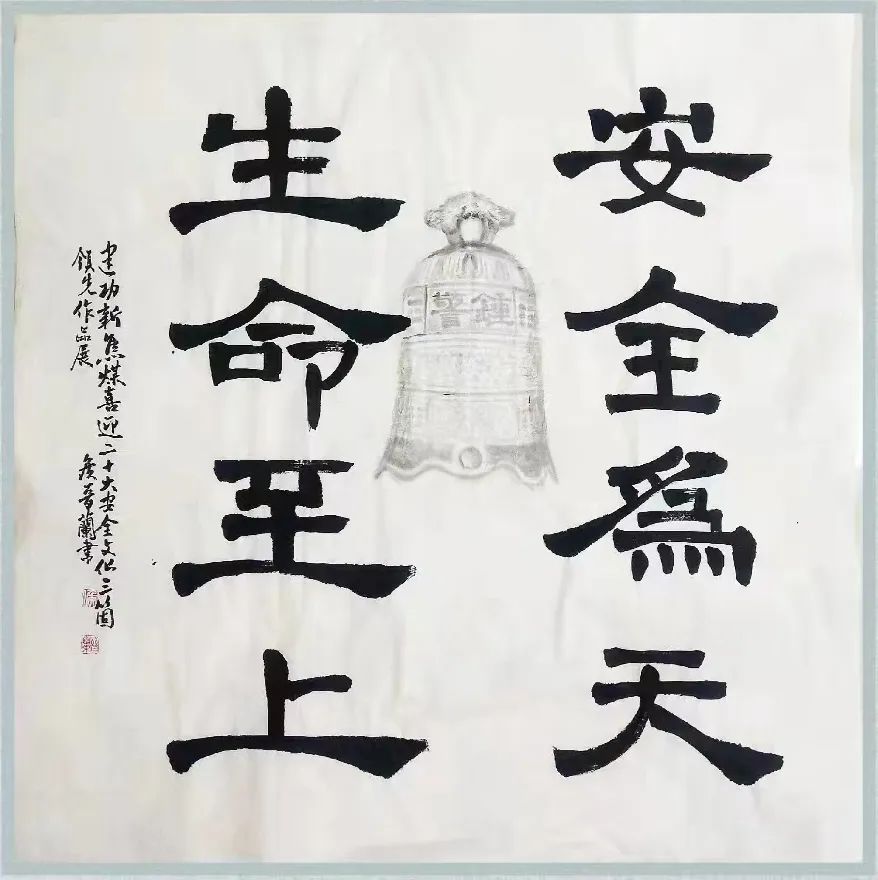 安全為天
生命至上
警鍾
建功新焦煤喜迎二十大安全文化三箇
領先作品展
侯晋蘭書